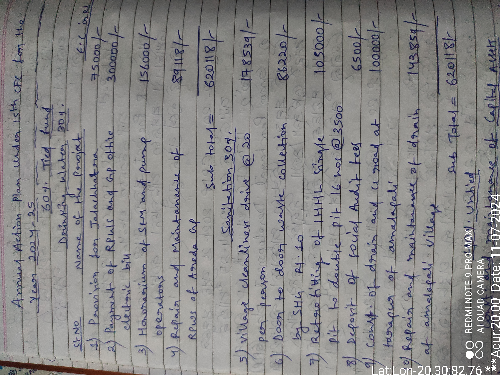 Annual Action Plan Under 15th CFC for the
Year 2024-25
60% Tied fund
Drinking Water 30%
Sl No Name of the Project E.C in
1) Provision for Jalachhatra 75000/-
2) Payment of RPWS and GP office 300000/-
electric bill
3) Honorarium of SEM and pump 156000/-
operators
4) Repair and Maintenance of 89118/-
RPWS of GP
Sub total = 620118/-
Sanitation 30%
5) Village cleanliness drive @ 20 178539/-
per person
6) Door to door waste collection 86220/-
by SHG
7) Retrofitting of IHHL Single 105000/-
pit to double pit @ 3500
8) Deposit of Social Audit fees 6500/-
9) Const of drain and road at 100000/-
of
Repair and maintenance of drain 143859/-
at village
Sub Total = 620118/-
Untied
Maintenance of Capital Assets
REDMI NOTE 9 PRO MAX
AI QUAD CAMERA
Lat Lon-20.30,82.76
Date: 11-07-2024